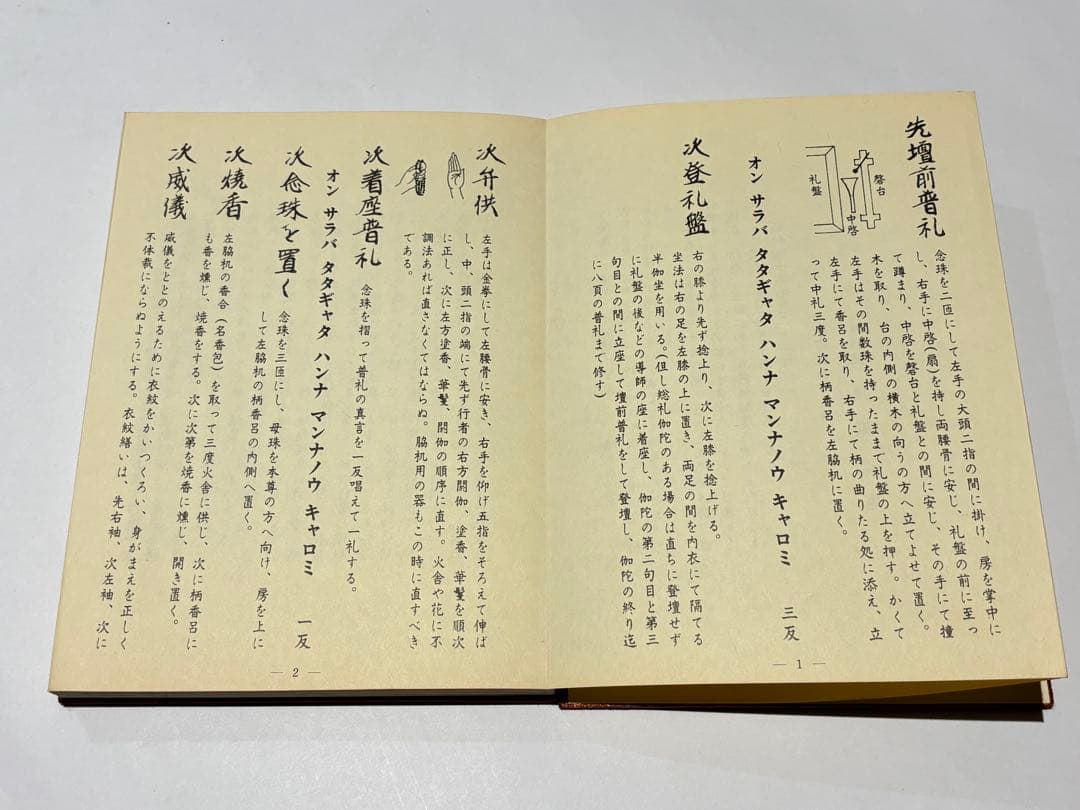 先壇前普礼
念珠を二匝にして左手の大頭二指の間に掛け、房を掌中に
し、右手に中啓(扇)を持し両腰骨に安じ、礼盤の前に至っ
て蹲まり、中啓を磬台と礼盤との間に安じ、その手にて撞
木を取り、台の内側の横木の向うの方へ立てよせて置く。
左手はその間数珠を持ったままで礼盤の上を押す。かくて
左手にて香呂を取り、右手にて柄の曲りたる処に添え、立
って中礼三度。次に柄香呂を左脇机に置く。
磬台
中啓
礼盤
オン サラバ タタギャタ ハンナ マンナノウ キャロミ 三反
次登礼盤
右の膝より先ず捻上り、次に左膝を捻上げる。
坐法は右の足を左膝の上に置き、両足の間を内衣にて隔てる
半伽坐を用いる。(但し総礼伽陀のある場合は直ちに登壇せず
に礼盤の後などの導師の座に着座し、伽陀の第二句目と第三
句目との間に立座して壇前普礼をして登壇し、伽陀の終り迄
に八頁の普礼まで修す)
— 1 —
次弁供
左手は金拳にして左腰骨に安き、右手を仰げ五指をそろえて伸ば
し、中、頭二指の端にて先ず行者の右方閼伽、塗香、華鬘を順次
に正し、次に左方塗香、華鬘、閼伽の順序に直す。火舎や花に不
調法あれば直さなくてはならぬ。脇机用の器もこの時に直すべき
である。
次着座普礼
念珠を摺って普礼の真言を一反唱えて一礼する。
オン サラバ タタギャタ ハンナ マンナノウ キャロミ 一反
次念珠を置く
念珠を三匝にし、母珠を本尊の方へ向け、房を上に
して左脇机の柄香呂の内側へ置く。
次焼香
左脇机の香合(名香包)を取って三度火舎に供じ、次に柄香呂に
も香を燻じ、焼香をする。次に次第を焼香に燻じ、開き置く。
次威儀
威儀をととのえるために衣紋をかいつくろい、身がまえを正しく
不体裁にならぬようにする。衣紋繕いは、先右袖、次左袖、次に
— 2 —